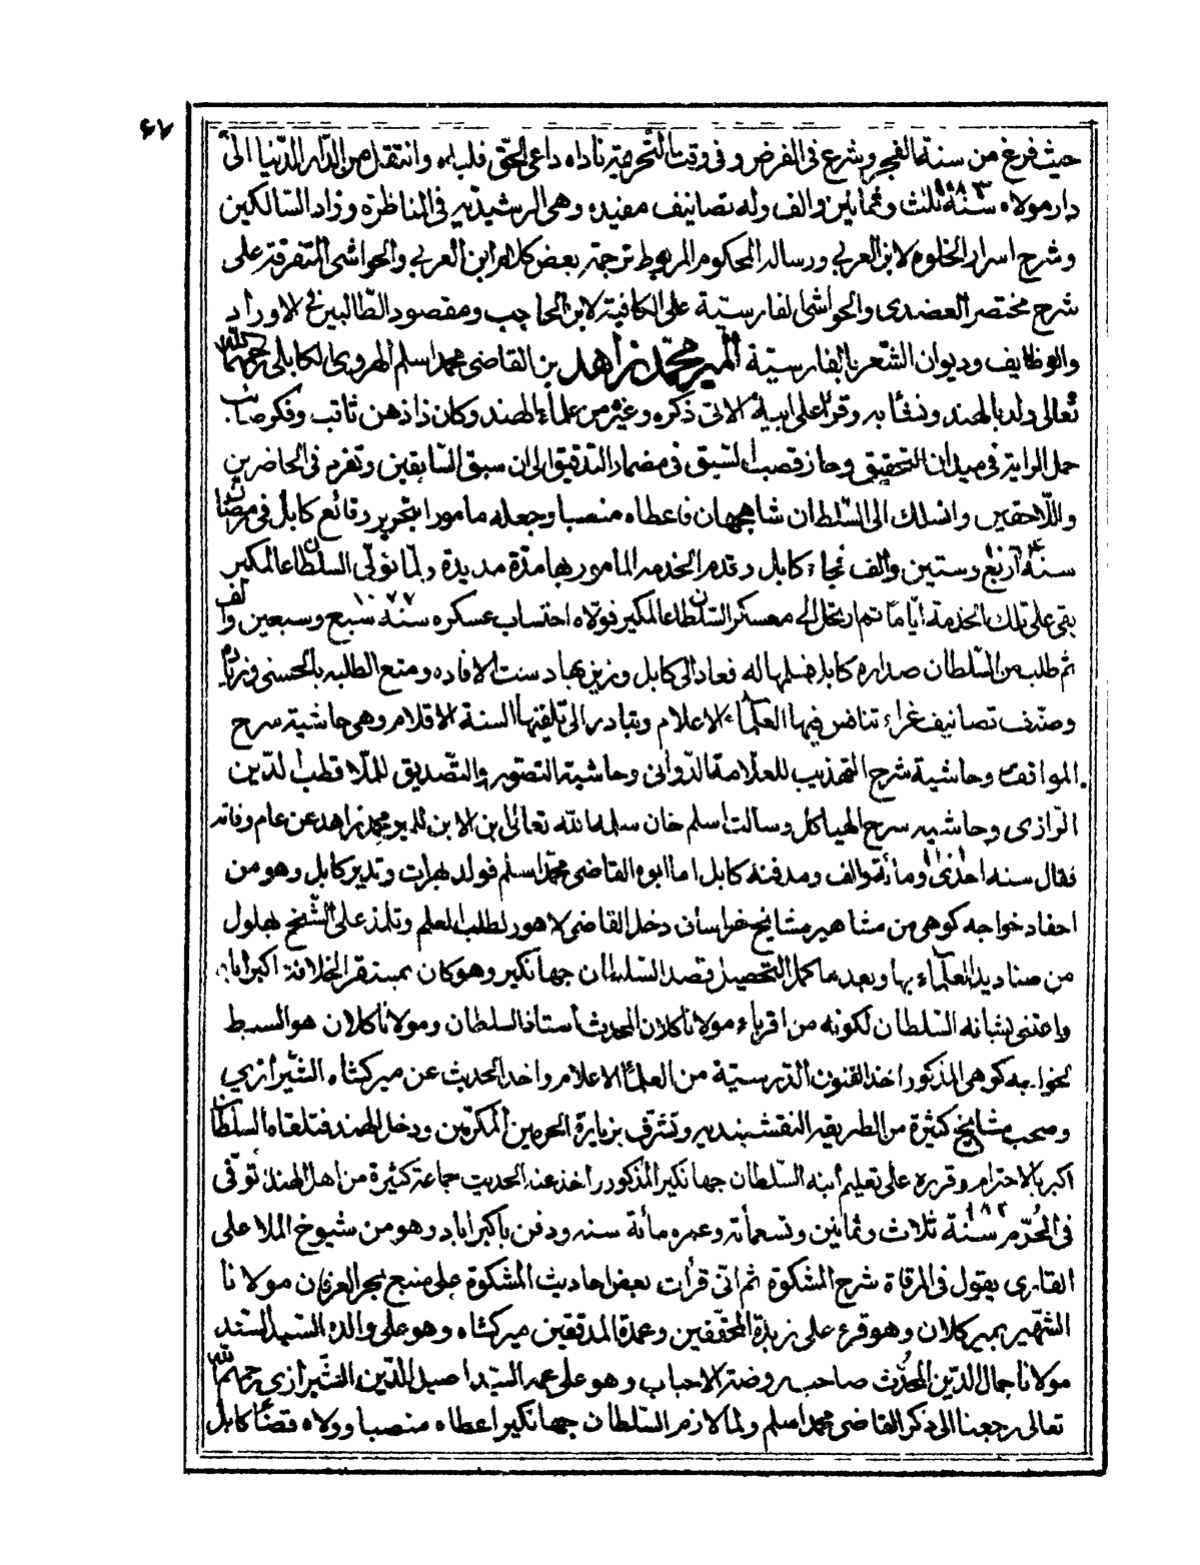 ۶۷
حيث فرغ من سنة الفجر وشرع فى الفرض وفى وقت التحريمة ناداه داعى الحق فلباه وانتقل من الدار الدنيا الى
دار مولاه سنة ١٠٨٣ ثلث وثمانين والف وله تصانيف مفيده وهى الرشيديه فى المناظرة وزاد السالكين
وشرح اسرار الخلوه لابن العربي ورساله المحكوم المربوط ترجمة بعض كلام ابن العربي والحواشى المتفرقة على
شرح مختصر العضدى والحواشى الفارسيّة على الكافية لابن الحاجب ومقصود الطّالبين فى الاوراد
والوظايف وديوان الشّعر بالفارسيّة المير محمّد زاهد بن القاضى محمد اسلم الهروى الكابلى رحمهما الله
تعالى ولد بالهند ونشأ به وقرأ على ابيه الاتى ذكره وغيره من علماء الهند وكان ذا ذهن ثاقب وفكر صائب
حمل الراية فى ميدان التحقيق وحاز قصب السّبق فى مضمار التدقيق الى ان سبق السّابقين وتفرد فى الحاضرين
واللّاحقين وانسلك الى السّلطان شاهجهان فاعطاه منصبا وجعله مامورا بتحرير وقائع كابل فى رمضان
سنة اربع وستين والف فجاء كابل وقدم الخدمه المامور بها مدّة مديدة ولمّا تولّى السلطان عالمكير
بقى على تلك الخدمة ايّاما ثم ارتحل الى معسكر السّلطان عالمكير فولاه احتساب عسكره سنة ١٠٧٧ سبع وسبعين والف
ثم طلب من السّلطان صداره كابل فسلمها له فعاد الى كابل وزين بها دست الافاده ومتع الطلبه بالحسنى وزياده
وصنّف تصانيف غراء تنافس فيها العلماء الاعلام وتبادر الى تلقفها السنة الاقلام وهى حاشية شرح
المواقف وحاشية شرح التهذيب للعلامة الدّوانى وحاشية التصوّر والتّصديق للملّا قطب الدّين
الرّازى وحاشيه شرح الهياكل وسالت اسلم خان سلمه الله تعالى بن الابن للمير محمد زاهد عن عام وفاته
فقال سنه احدى ومأئة والف ومدفنه كابل اما ابوه القاضى محمّد اسلم فولد بهرات وتدير كابل وهو من
احفاد خواجه كوهى من مشاهير مشايخ خراسان دخل القاضى لاهور لطلب العلم وتلمذ على الشّيخ بهلول
من صناديد العلماء بها وبعد ما كمل التحصيل قصد السّلطان جهانكير وهو كان بمستقر الخلافة اكبراباد
واعتنى بشانه السّلطان لكونه من اقرباء مولانا كلان المحدث استاذ السلطان ومولانا كلان هو السبط
لخواجه كوهى المذكور اخذ الفنون الدّرسيّة من العلماء الاعلام واخذ الحديث عن ميركشاه الشّيرازي
وصحب مشايخ كثيرة من الطريقه النقشبنديه وتشرّف بزيارة الحرمين المكرّمين ودخل الهند فتلقاه السلطان
اكبر بالاحترام وقرره على تعليم ابنه السّلطان جهانكير المذكور اخذ عنه الحديث جماعة كثيرة من اهل الهند توفّى
فى المحرّم سنة ٩٨٣ ثلاث وثمانين وتسعمأئة وعمره مائة سنه ودفن باكبراباد وهو من شيوخ الملا على
القارى يقول فى المرقاة شرح المشكوة ثم انّى قرأت بعض احاديث المشكوة على منبع بحر العرفان مولانا
الشّهير بمير كلان وهو قرء على زبدة المحقّقين وعمدة المدققين ميركشاه وهو على والده السّيد السّند
مولانا جمال الدّين المحدّث صاحب روضة الاحباب وهو على عمه السيّد اصيل الدّين الشّيرازي رحمهم الله
تعالى رجعنا الى ذكر القاضى محمد اسلم ولما لازم السّلطان جهانكير اعطاه منصبا وولاه قضاء كابل